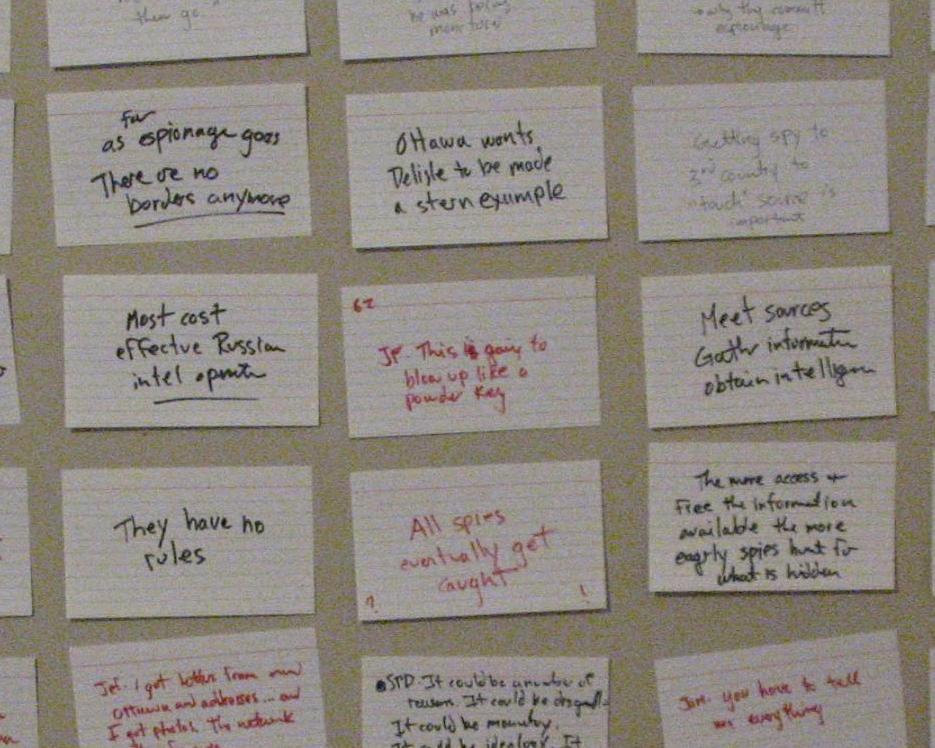 then go
he was being
more
why they commit
espionage
for
as espionage goes
There are no
borders anymore
Ottawa wants
Delisle to be made
a stern example
Getting spy to
3rd country to
"touch" source is
important
Most cost
effective Russian
intel
62
Jr. This is going to
blow up like a
powder Keg
Meet sources
Gather information
obtain intelligence
They have no
rules
All spies
eventually get
caught
? !
The more access +
Free the information
available the more
eagrly spies hunt for
what is hidden
I got letters from
Ottawa and addresses ... and
I got photos. The network
STD. It could be a number of
reasons. It could be
It could be monetary.
It could be ideology. It
Jim. you have to tell
me everything